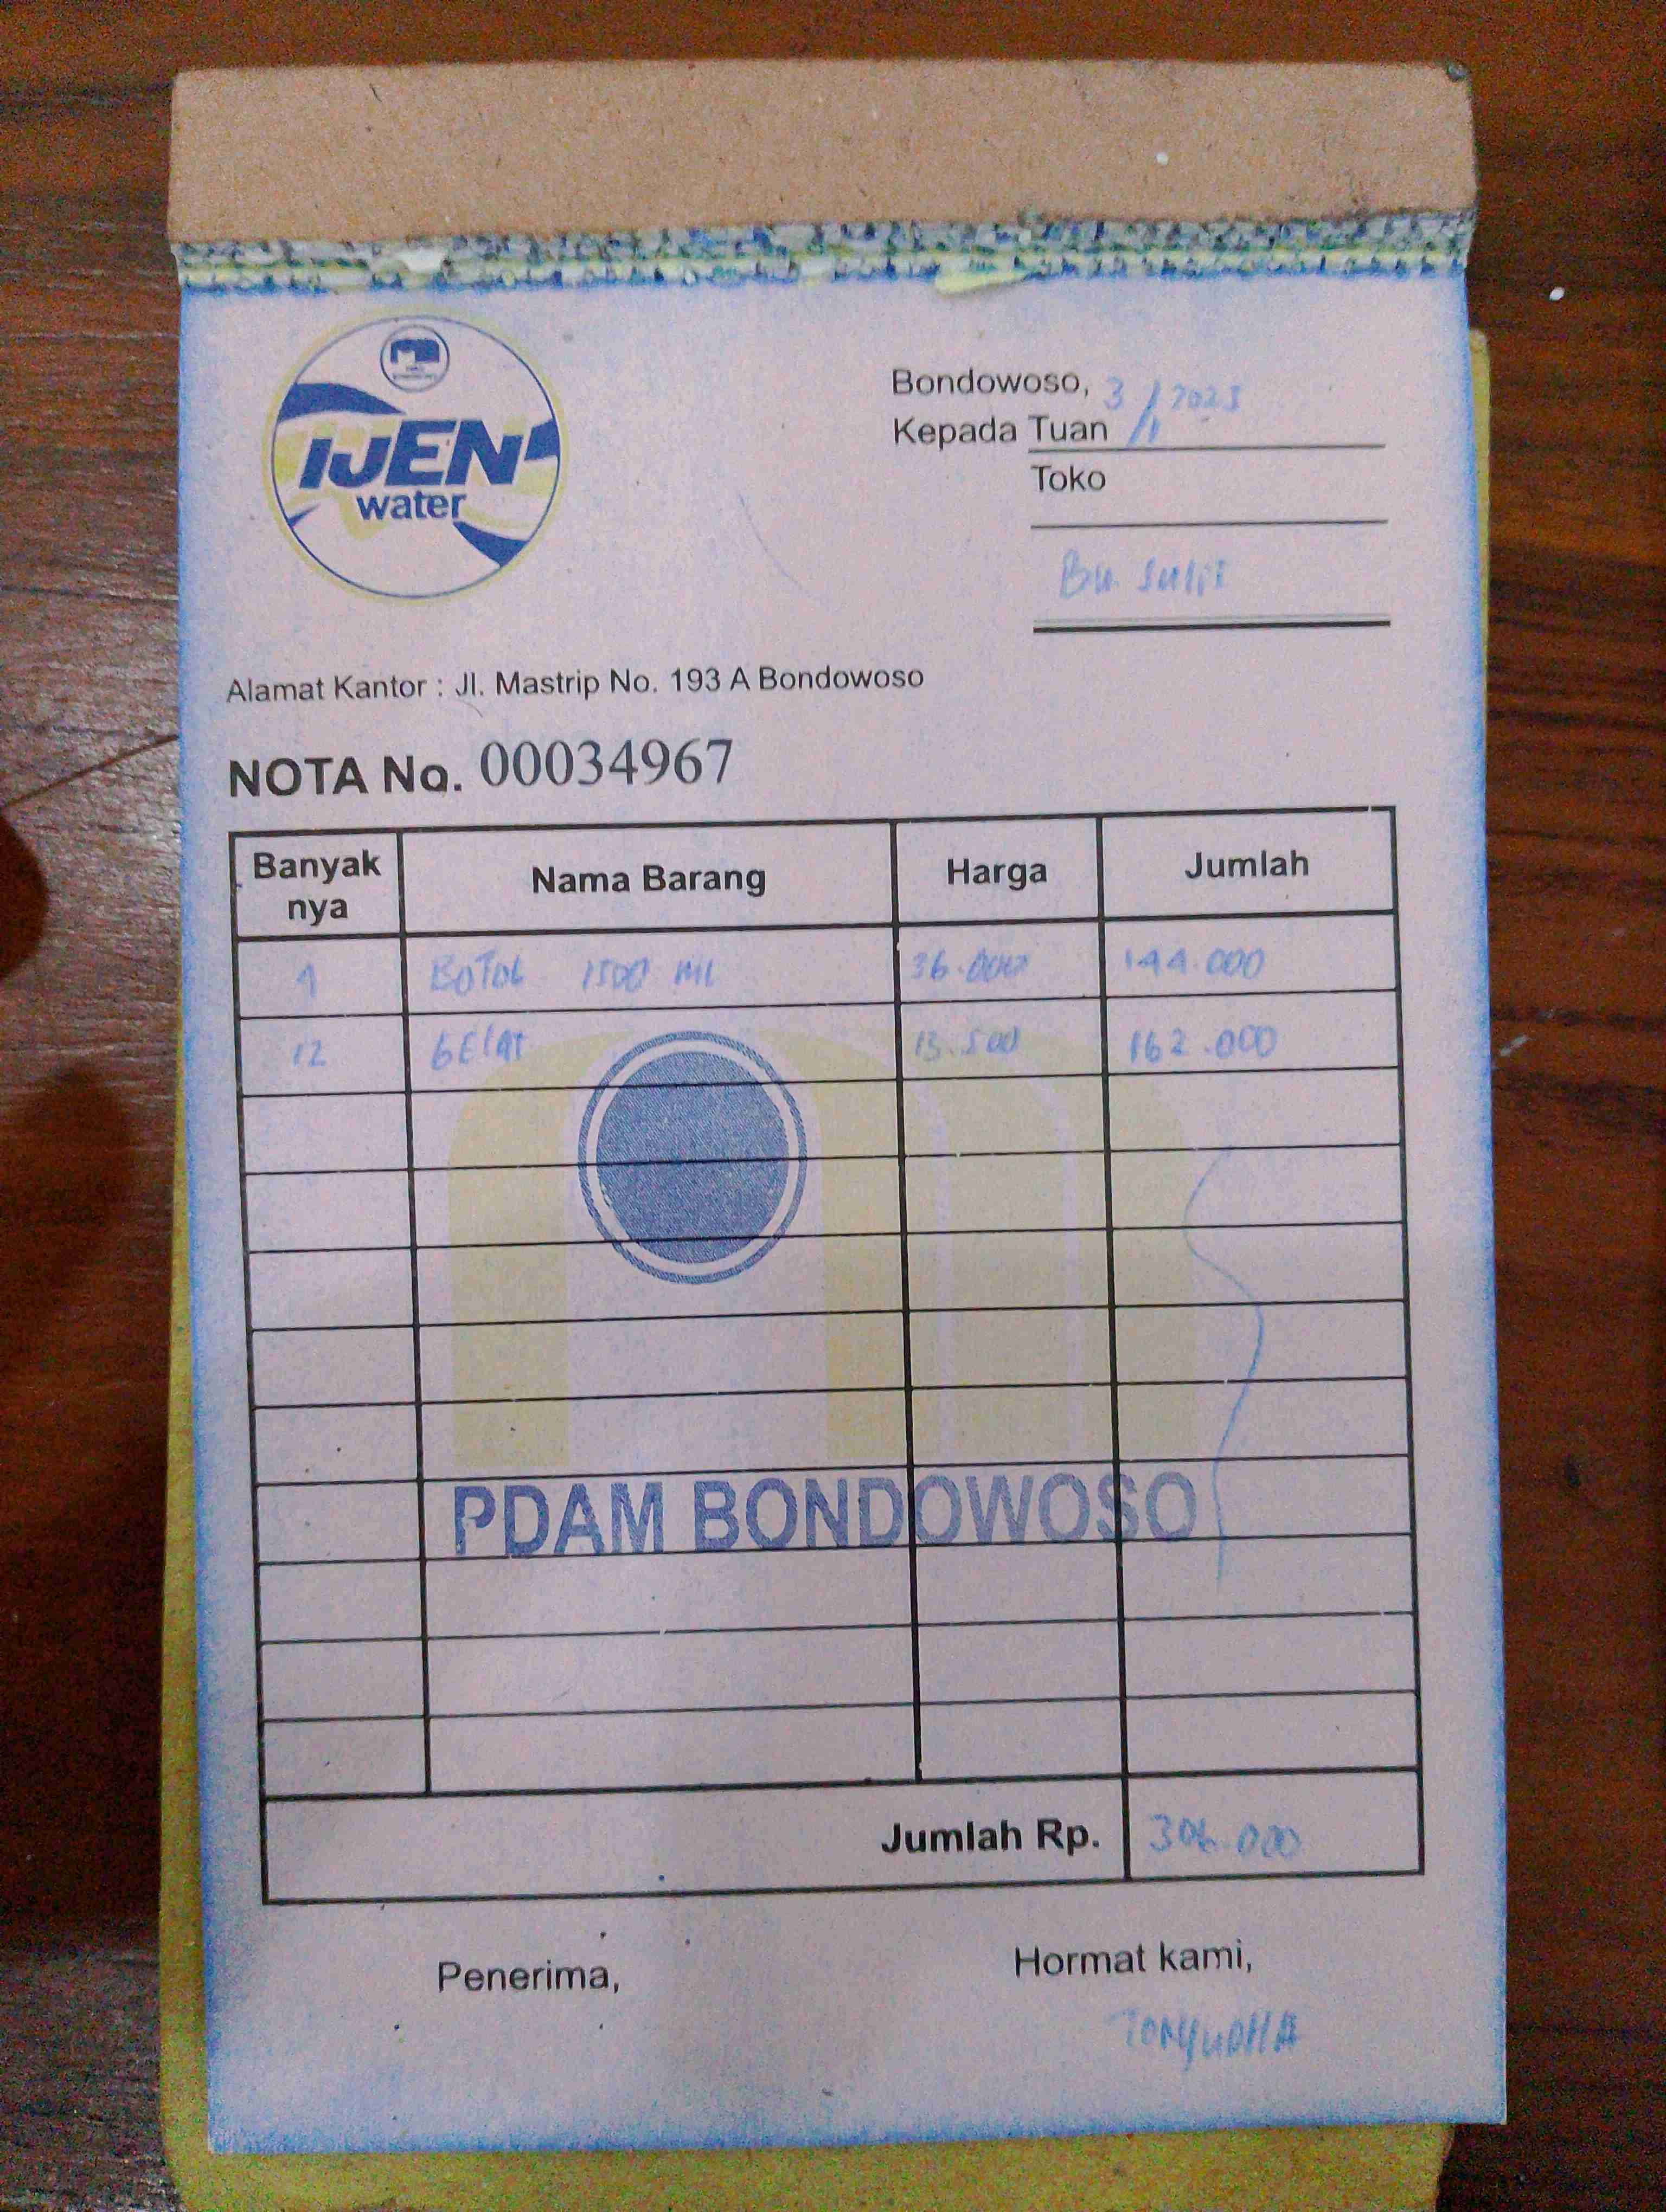 IJEN
water
Bondowoso, 3/1 2023
Kepada Tuan
Toko
Bu.
Alamat Kantor : Jl. Mastrip No. 193 A Bondowoso
NOTA No. 00034967
Banyak nya Nama Barang Harga Jumlah
4 BOTOL 1500 ML 36.000 144.000
12 GELAS 13.500 162.000
PDAM BONDOWOSO
Jumlah Rp. 306.000
Penerima, Hormat kami,